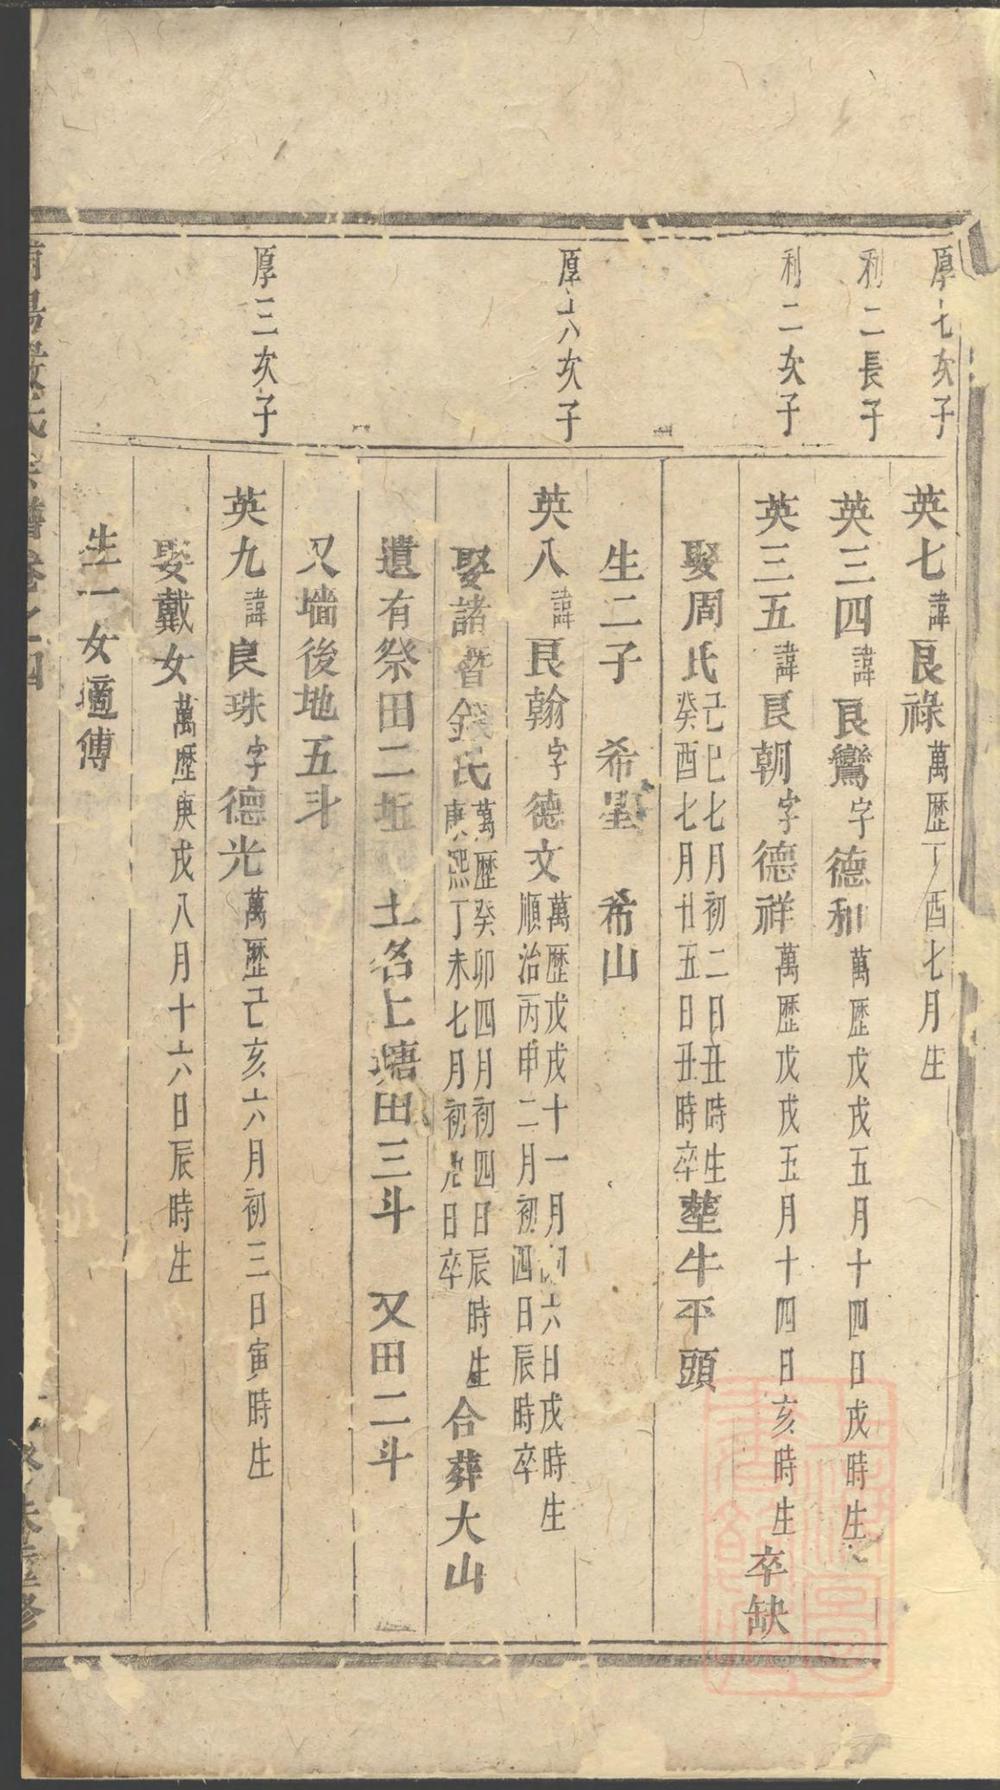 厚七次子
英七諱良祿萬歷丁酉七月生
利二長子
英三四諱良鸞字德和萬歷戊戌五月十四日戌時生
利二次子
英三五諱良朝字德祥萬歷戊戌五月十四日亥時生卒缺
娶周氏己巳七月初二日丑時生癸酉七月廿五日丑時卒塟牛平頭
生二子 希聖 希山
次子
英八諱良翰字德文萬歷戊戌十一月初六日戌時生順治丙申二月初四日辰時卒
娶諸暨錢氏萬歷癸卯四月初四日辰時生康熙丁未七月初九日卒合葬大山
遺有祭田二坵 土名上塘田三斗 又田二斗
又墻後地五斗
厚三次子
英九諱良珠字德光萬歷己亥六月初三日寅時生
娶戴女萬歷庚戌八月十六日辰時生
生一女適傅
氏宗譜卷之四